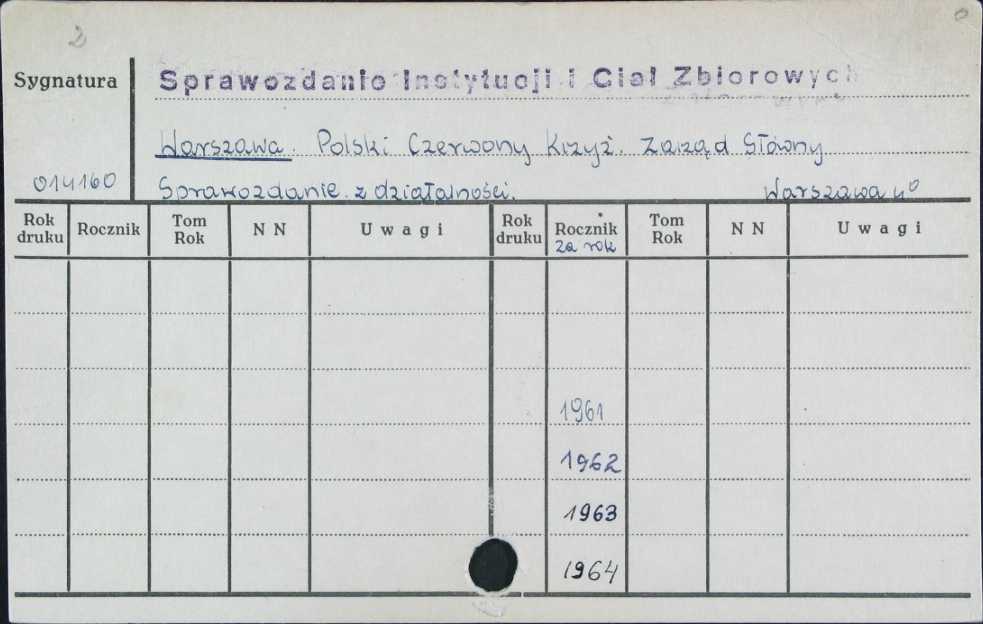 2
Sygnatura
Sprawozdanie Instytucji i Ciał Zbiorowych
Warszawa. Polski Czerwony Krzyż. Zarząd Główny
014160
Sprawozdanie z działalności. Warszawa 4°
Rok druku Rocznik Tom Rok NN Uwagi Rok druku Rocznik za rok Tom Rok NN Uwagi
1961
1962
1963
1964